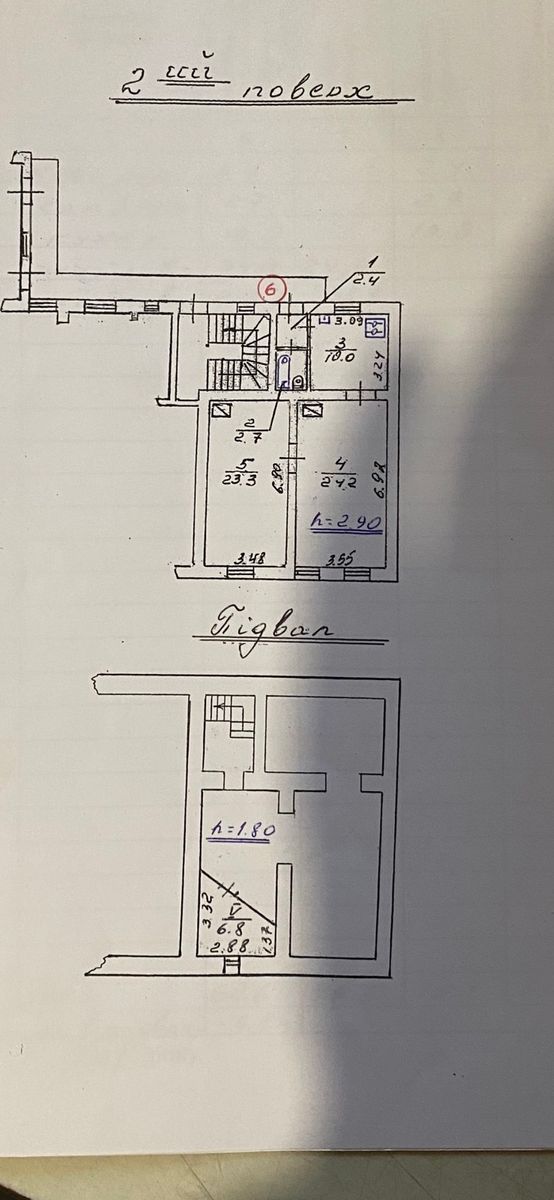 2 ший поверх
6
1
2.4
3.09
3
10.0
3.24
2
2.7
5
23.3
6.90
4
24.2
6.92
h=2.90
3.48
3.55
Підвал
h=1.80
3.32
V
6.8
2.88
1.37